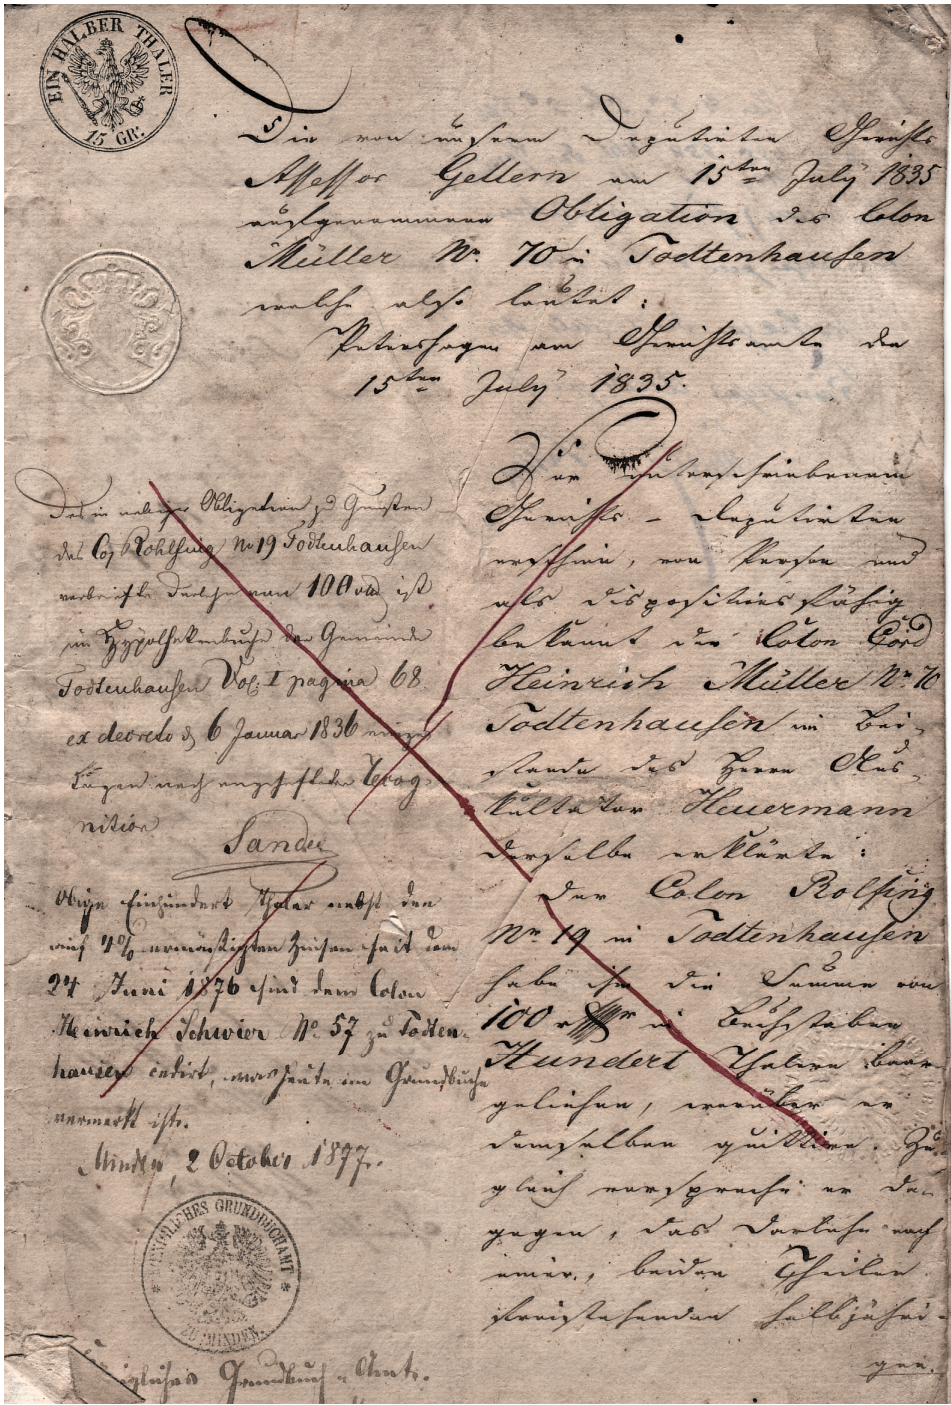 EIN HALBER THALER
15 GR.
Die von unserm Deputirten Gerichts
Assessor Gellern am 15ten July 1835
aufgenommene Obligation des Colon
Müller Nr. 70 in Todtenhausen
welche also lautet:
Petershagen am Gerichtsamte den
15ten July 1835.
Vor unterschriebenem
Gerichts-Deputirten
erschien, von Person und
als dispositionsfähig
bekannt der Colon Cord
Heinrich Müller Nr. 70
Todtenhausen im Bei-
stande des Herrn Aus-
kultator Heuermann
derselbe erklärte:
Der Colon Rolfsing
Nr. 19 in Todtenhausen
habe ihm die Summe von
100 in Buchstaben
Hundert Thalern baar
geliehen, worüber er
demselben quittire. Zu-
gleich verspreche er da-
gegen, das Darlehn nach
einer, beiden Theilen
freistehenden halbjähri-
gen
Das in nebiger Obligation zu Gunsten
des Col. Rohlfsing No 19 Todtenhausen
verbriefte Darlehn von 100 ist
im Hypothekenbuche der Gemeinde
Todtenhausen Vol. I pagina 68
ex decreto 6 Januar 1836 einge-
tragen nach angehefteter Recog-
nition
Sander
Obige Einhundert Thaler nebst den
auf 4% ermäßigten Zinsen seit dem
24 Juni 1876 sind dem Colon
Heinrich Schwier No. 57 zu Todten-
hausen cedirt, was heute im Grundbuche
vermerkt ist.
Minden, 2 October 1877.
KÖNIGLICHES GRUNDBUCHAMT
ZU MINDEN.
Königliches Grundbuch-Amt.